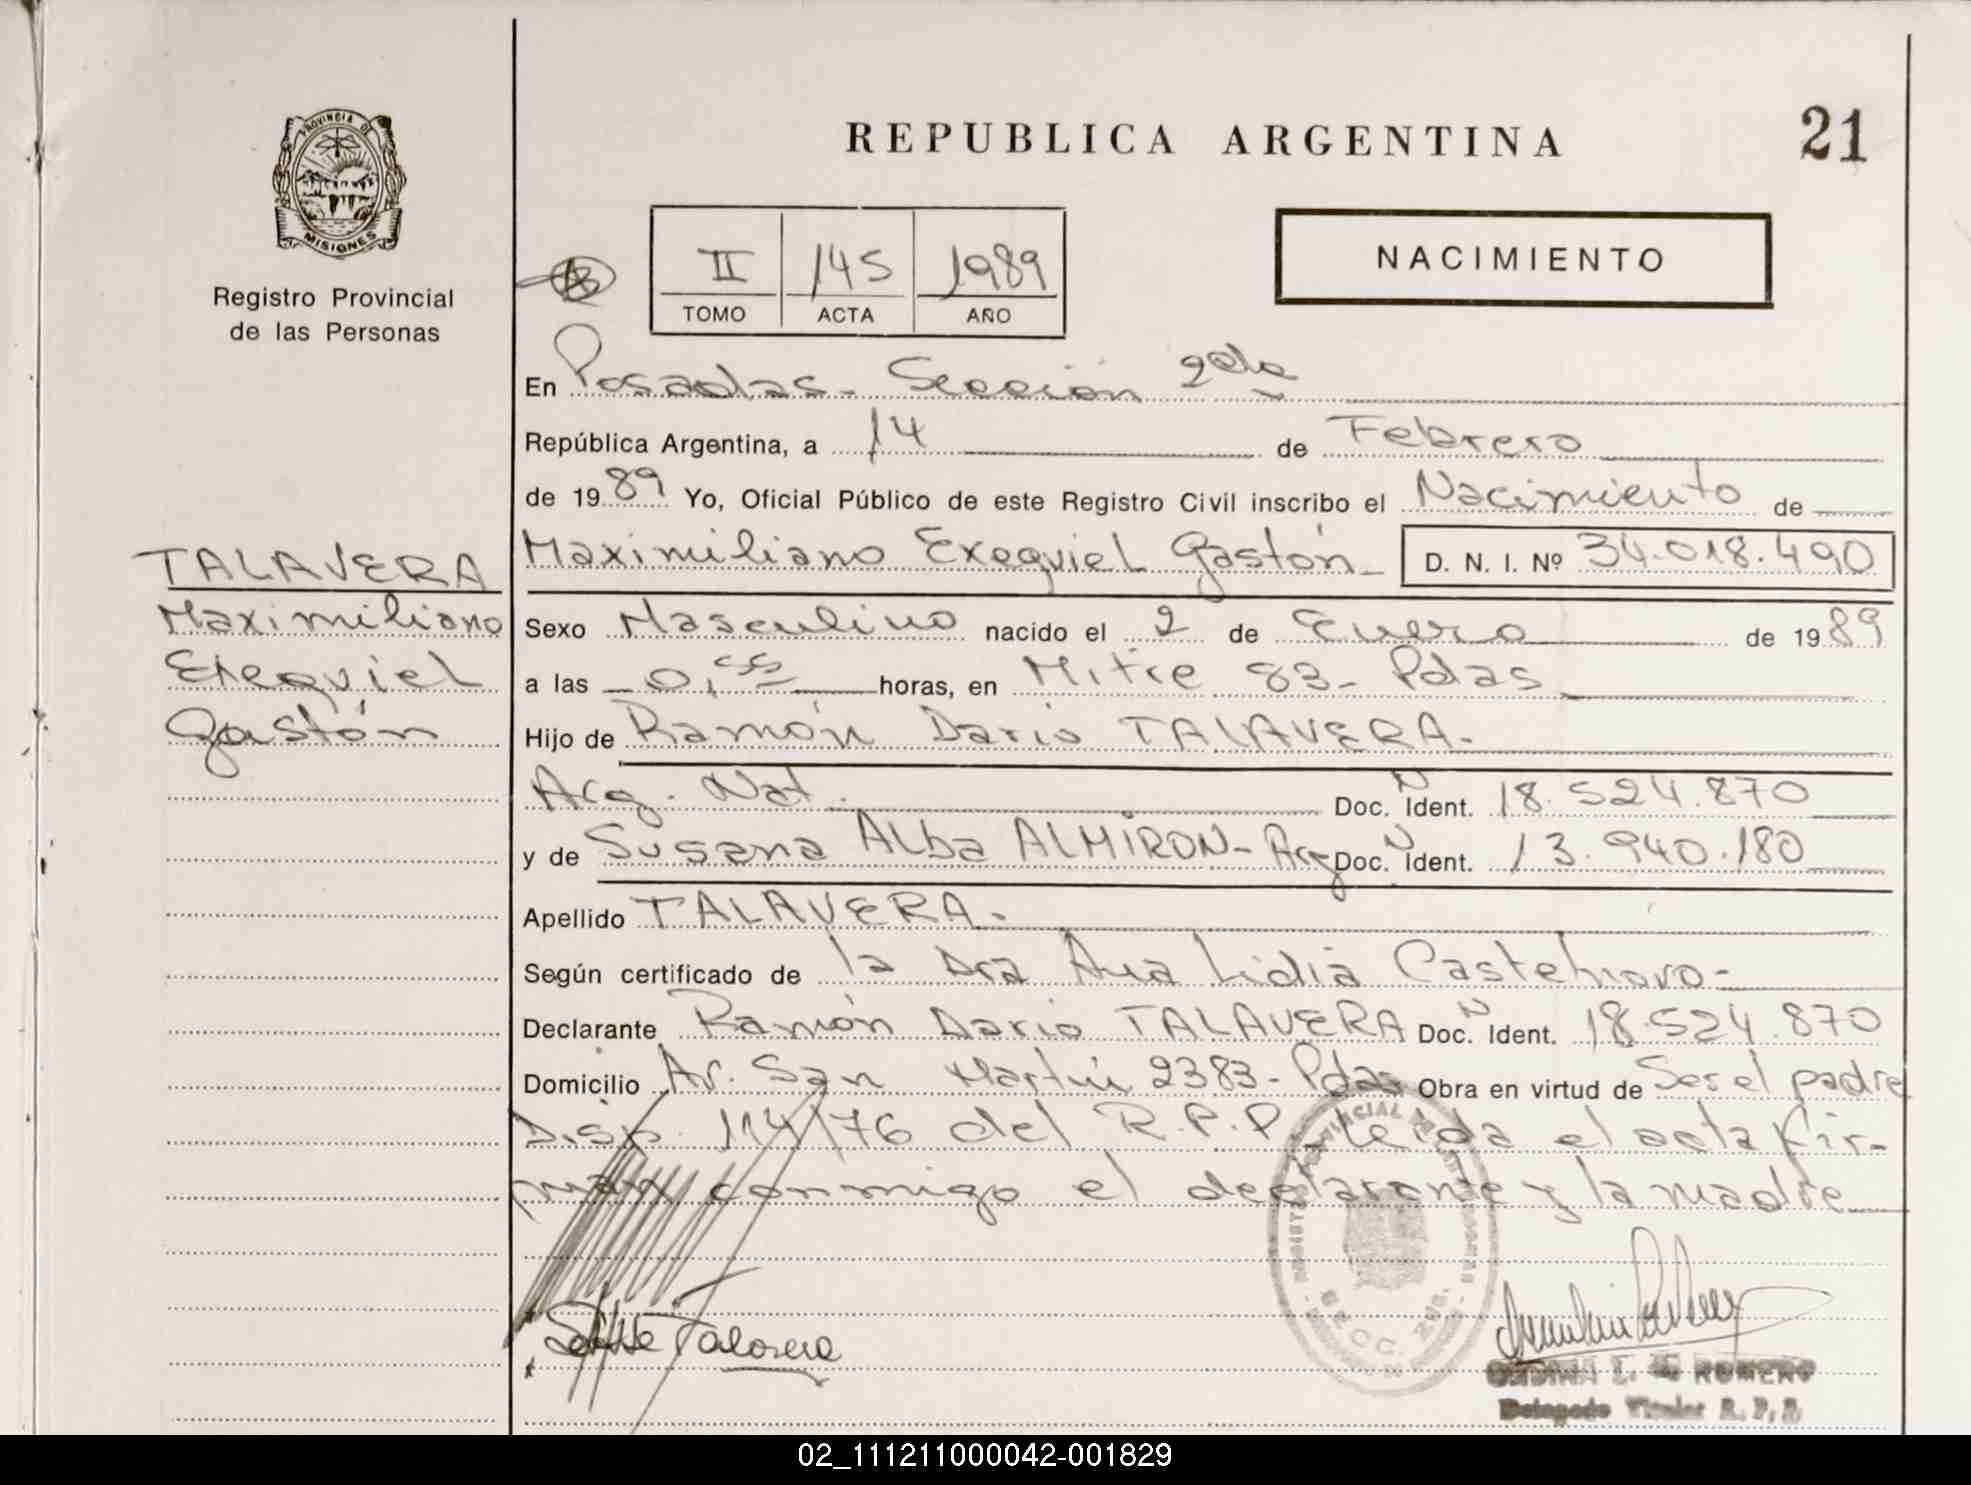 PROVINCIA DE
MISIONES
Registro Provincial
de las Personas
REPUBLICA ARGENTINA
21
II 145 1989
TOMO ACTA AÑO
NACIMIENTO
En Posadas - Sección 2da
República Argentina, a 14 de Febrero
de 1989 Yo, Oficial Público de este Registro Civil inscribo el Nacimiento de
Maximiliano Exequiel Gastón - D. N. I. Nº 34.018.490
TALAVERA
Maximiliano
Exequiel
Gastón
Sexo Masculino nacido el 2 de Enero de 1989
a las 0, horas, en Mitre 83 - Pdas
Hijo de Ramón Dario TALAVERA.
Arg. Nat. Doc. N Ident. 18.524.870
y de Susana Alba ALMIRON - Arg Doc. N Ident. 13.940.180
Apellido TALAVERA.
Según certificado de la Dra Ana Lidia Castelnovo -
Declarante Ramón Dario TALAVERA Doc. N Ident. 18.524.870
Domicilio Av. San Martín 2383 - Pdas Obra en virtud de Ser el padre
Disp. 114/76 del R.P.P. Leida el acta fir-
man conmigo el declarante y la madre
ROMERO
Delegado Titular R. P. P.
02_111211000042-001829